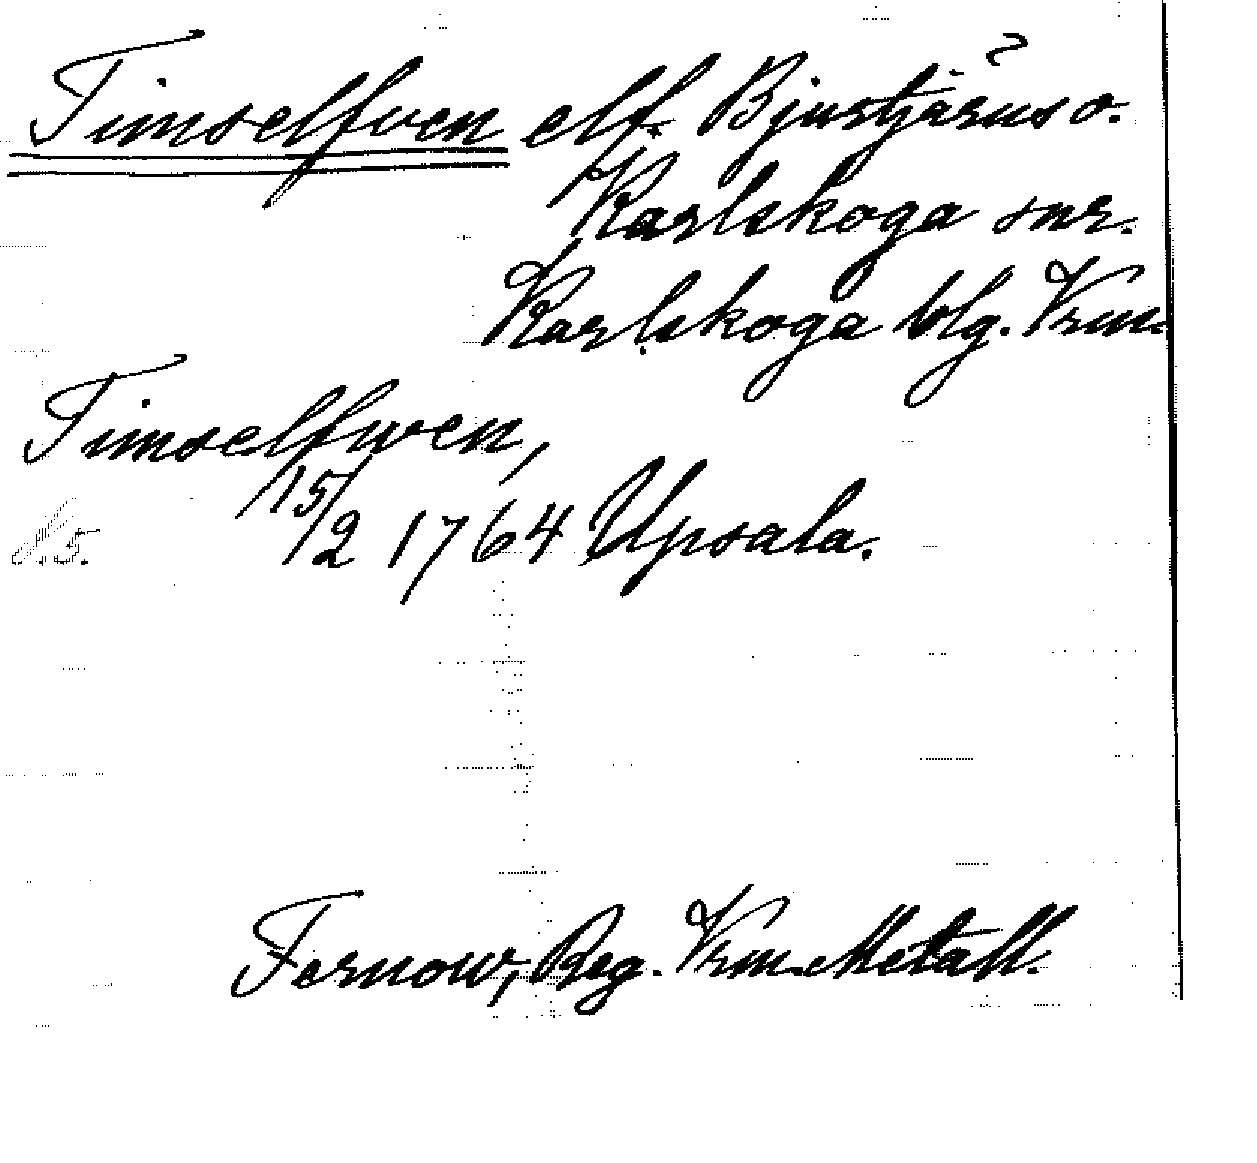 ?
Timselfven elf. Bjurtjärns o.
Karlskoga snr.
Karlskoga blg. Vrm.
Timselfwen,
15/2 1764 Upsala.
Fernow, Beg. Vrm. Metall.